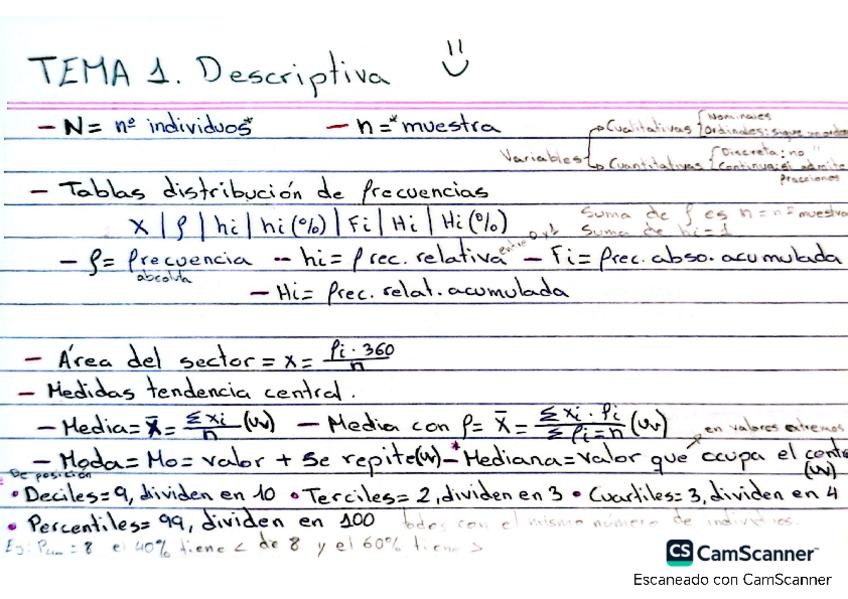 TEMA 1. Descriptiva
- N = nº individuos* - n =* muestra
Variables Cualitativas { Nominales
Ordinales: sigue un orden
Cuantitativas { Discreta: no "
Continua: si admite
fracciones
- Tablas distribución de frecuencias
X | f | hi | hi (%) | Fi | Hi | Hi (%)
Suma de f es n = nº muestra
Suma de hi = 1
- f = frecuencia absoluta -- hi = frec. relativa entre 0 y 1 - Fi = frec. abso. acumulada
- Hi = frec. relat. acumulada
- Área del sector = x = fi · 360 / n
- Medidas tendencia central.
- Media = x̄ = Σxi / n (uv) - Media con f = x̄ = Σxi · fi / Σfi = n (uv)
en valores extremos
- Moda = Mo = valor + se repite (uv) -* Mediana = valor que ocupa el centro (uv)
De posición
• Deciles = 9, dividen en 10 • Terciles = 2, dividen en 3 • Cuartiles = 3, dividen en 4
• Percentiles = 99, dividen en 100 todos con el mismo número de individuos.
Ej: = 8 el 40% tiene < de 8 y el 60% tiene >
CS CamScanner
Escaneado con CamScanner